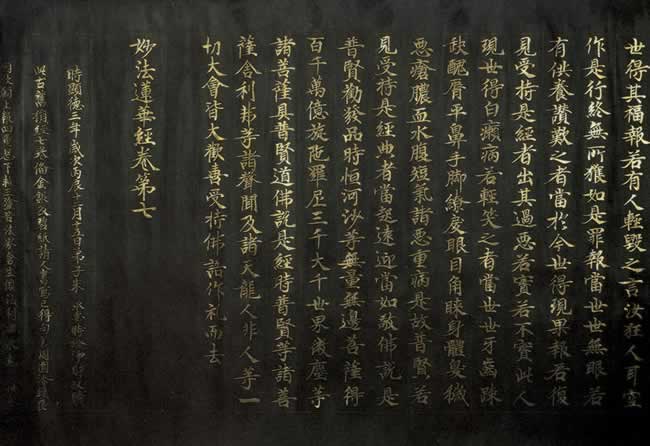 世得其福報若有人輕毀之言汝狂人耳空
作是行終無所獲如是罪報當世世無眼若
有供養讚歎之者當於今世得現果報若復
見受持是經者出其過惡若實若不實此人
現世得白癩病若輕笑之者當世世牙齒踈
缺醜脣平鼻手脚繚戾眼目角睞身體臭穢
惡瘡膿血水腹短氣諸惡重病是故普賢若
見受持是經典者當起遠迎當如敬佛說是
普賢勸發品時恒河沙等無量無邊菩薩得
百千萬億旋陀羅尼三千大千世界微塵等
諸菩薩具普賢道佛說是經時普賢等諸菩
薩舍利弗等諸聲聞及諸天龍人非人等一
切大會皆大歡喜受持佛語作禮而去
妙法蓮華經卷第七
時顯德三年歲次丙辰十二月十五日弟子朱